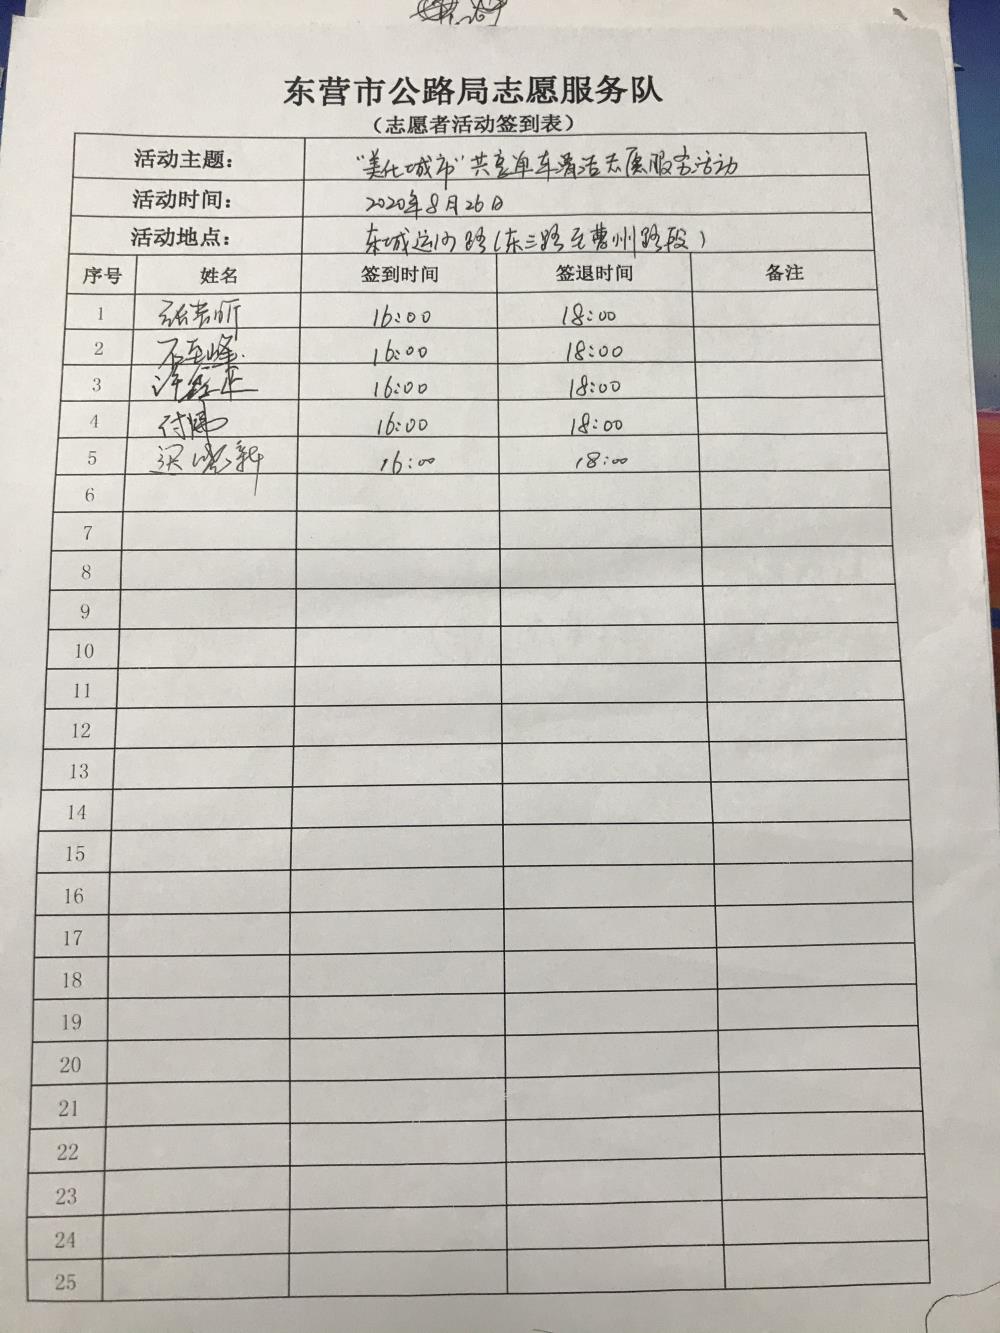 东营市公路局志愿服务队
（志愿者活动签到表）
活动主题： “美化城市”共享单车清洁志愿服务活动
活动时间： 2020年8月26日
活动地点： 东城运河路（东三路至曹州路段）
序号 姓名 签到时间 签退时间 备注
1 16:00 18:00
2 16:00 18:00
3 16:00 18:00
4 16:00 18:00
5 梁 新 16:00 18:00
6
7
8
9
10
11
12
13
14
15
16
17
18
19
20
21
22
23
24
25